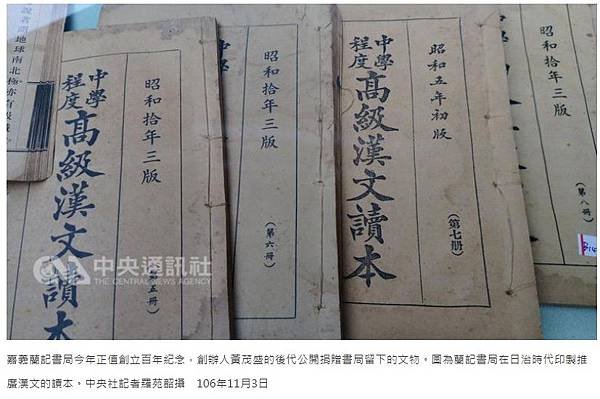 者謂地球南北極亦有
昭和拾年三版
中學
程度
高級漢文讀本
五冊）
昭和拾年三版
（第六冊）
中學
昭和五年初版
（第七冊）
中學
程度
高級漢文讀本
昭和拾年三版
（第八冊）
中央通訊社
THE CENTRAL NEWS AGENCY
嘉義蘭記書局今年正值創立百年紀念，創辦人黃茂盛的後代公開捐贈書局留下的文物。圖為蘭記書局在日治時代印製推
廣漢文的讀本。中央社記者羅苑韶攝　106年11月3日